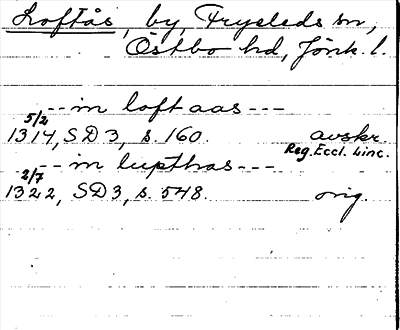 Loftås, by, Fryeleds sn,
Östbo hd, Jönk. l.
-- in loft aas ---
5/2
1314, SD 3, s. 160. avskr.
Reg. Eccl. Linc.
-- in lupthas ---
2/7
1322, SD 3, s. 548. orig.